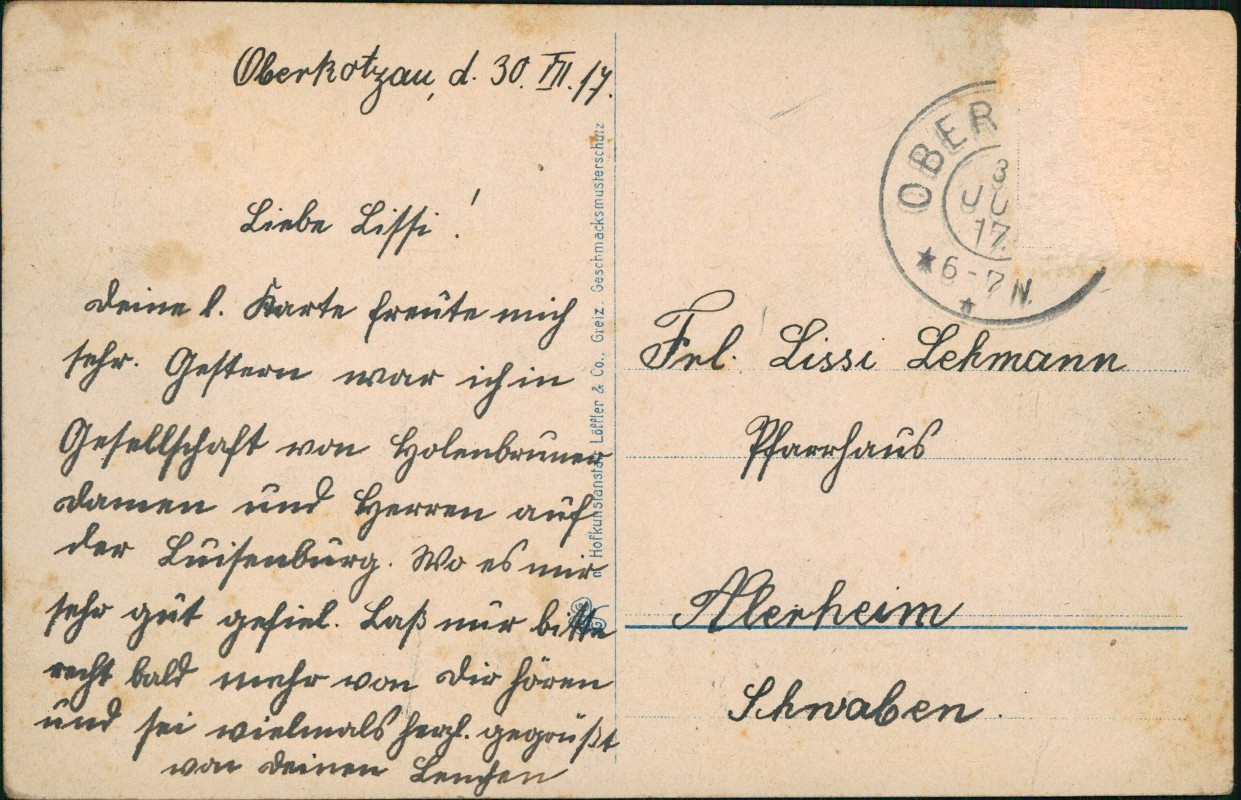 Oberkotzau, d. 30. VII. 17.
Liebe Lissi!
Deine l. Karte freute mich
sehr. Gestern war ich in
Gesellschaft von Holenbruner
Damen und Herren auf
der Luisenburg. Wo es mir
sehr gut gefiel. Laß nur bitte
recht bald mehr von Dir hören
und sei vielmals herzl. gegrüßt
von Deinen Lenchen
Hofkunstanstalt Löffler & Co., Greiz. Geschmacksmusterschutz
OBER
3
JU
17.
6-7 N.
Frl. Lissi Lehmann
Pfarrhaus
Alerheim
Schwaben.